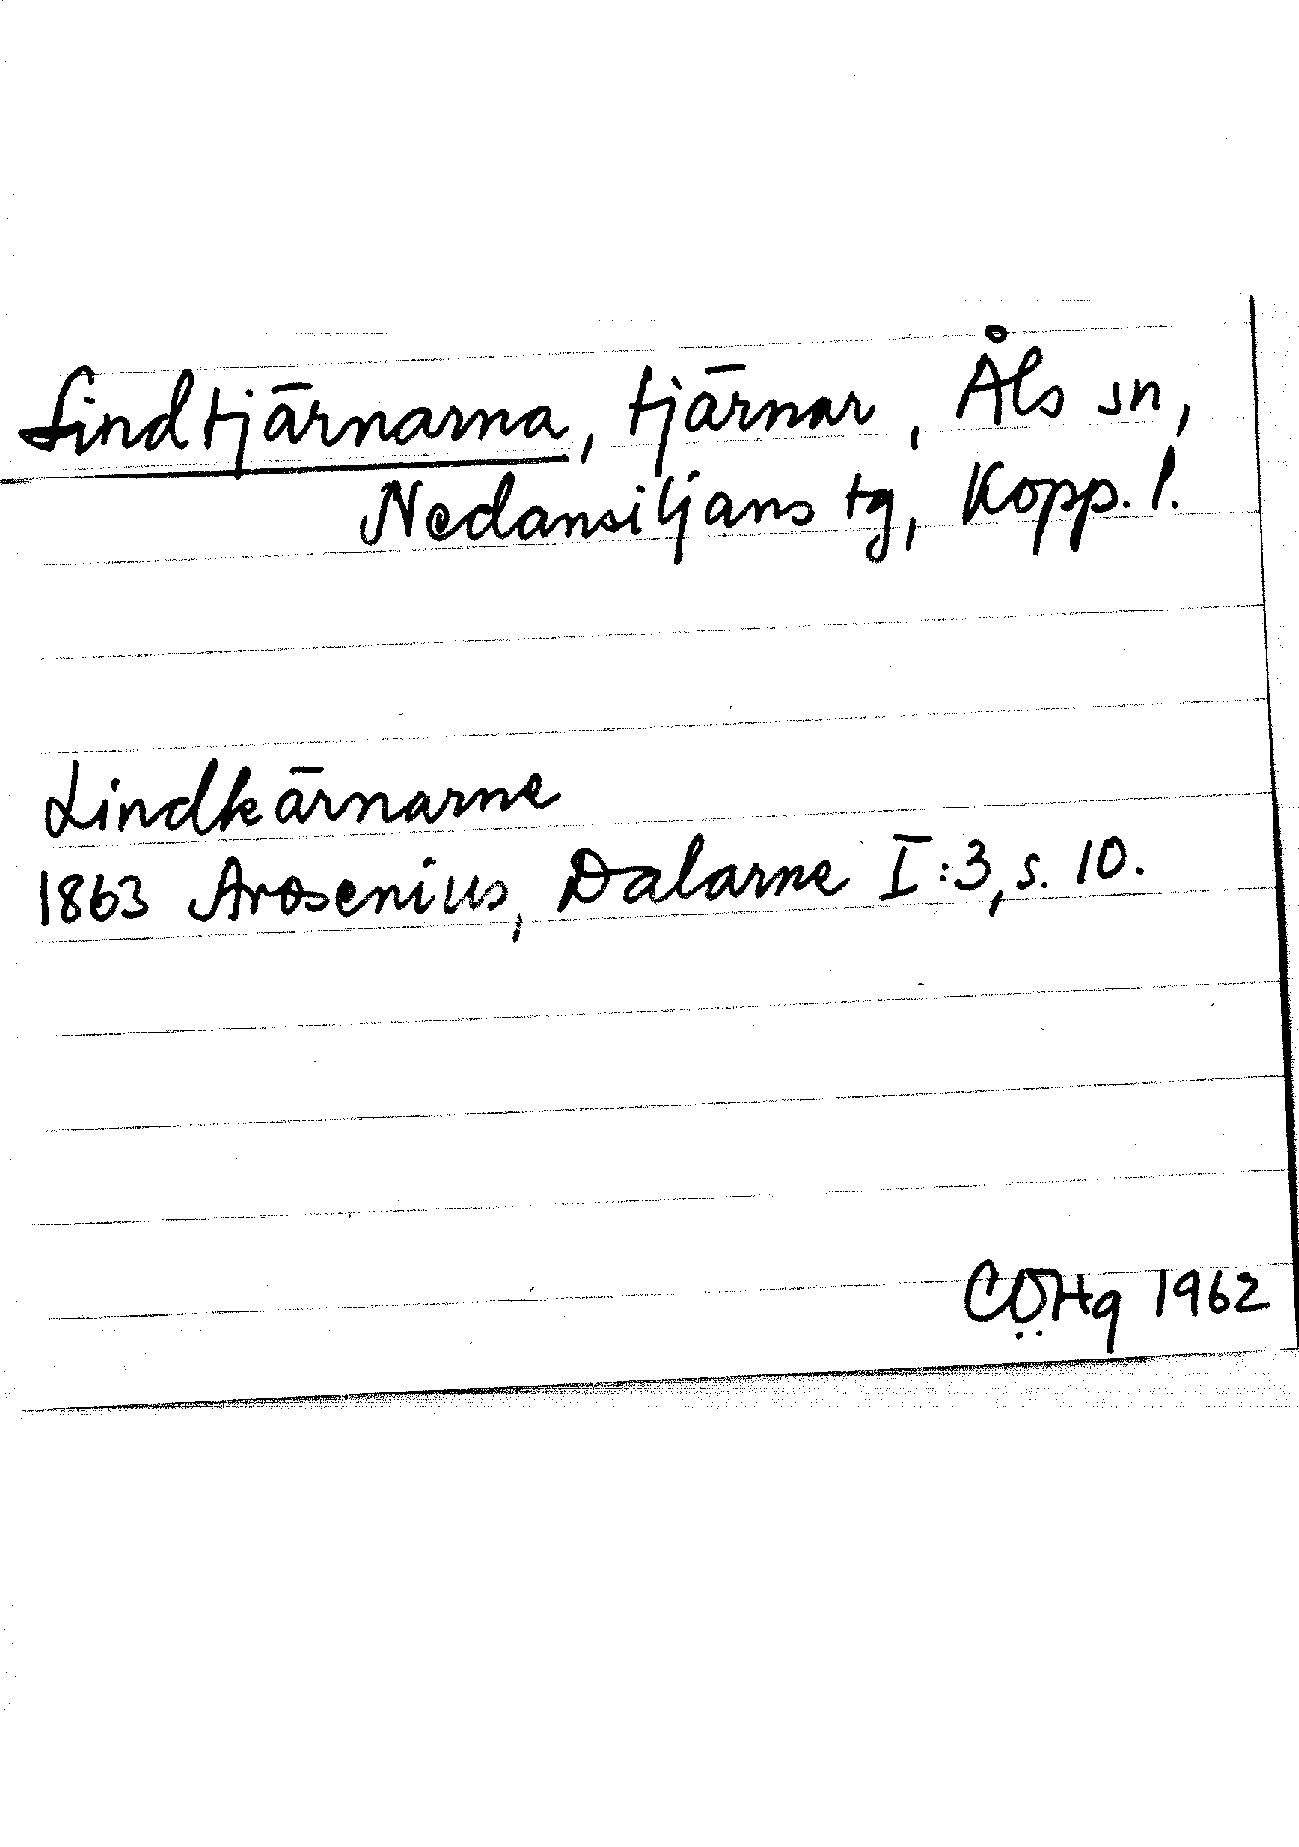 Lindtjärnarna, tjärnar, Åls sn,
Nedansiljans tg, Kopp. l.
Lindkärnarne
1863 Arosenius, Dalarne I:3, s. 10.
CÖHg 1962